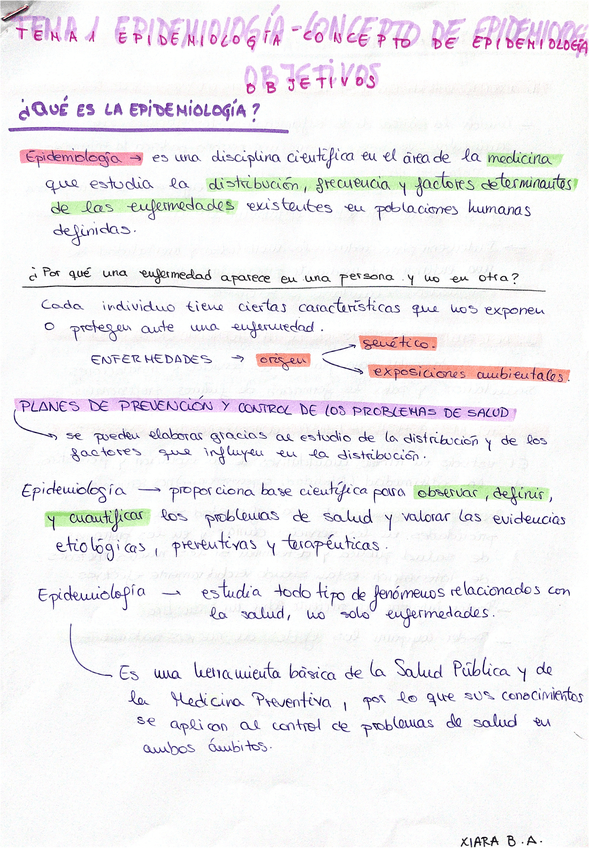 TEMA 1 EPIDEMIOLOGÍA - CONCEPTO DE EPIDEMIOLOGÍA
OBJETIVOS
¿QUÉ ES LA EPIDEMIOLOGÍA?
Epidemiología → es una disciplina científica en el área de la medicina
que estudia la distribución, frecuencia y factores determinantes
de las enfermedades existentes en poblaciones humanas
definidas.
¿Por qué una enfermedad aparece en una persona y no en otra?
Cada individuo tiene ciertas características que nos exponen
o protegen ante una enfermedad.
ENFERMEDADES → origen
genético.
exposiciones ambientales.
PLANES DE PREVENCIÓN Y CONTROL DE LOS PROBLEMAS DE SALUD
se pueden elaborar gracias al estudio de la distribución y de los
factores que influyen en la distribución.
Epidemiología → proporciona base científica para observar, definir,
y cuantificar los problemas de salud y valorar las evidencias
etiológicas, preventivas y terapéuticas.
Epidemiología → estudia todo tipo de fenómenos relacionados con
la salud, no solo enfermedades.
Es una herramienta básica de la Salud Pública y de
la Medicina Preventiva, por lo que sus conocimientos
se aplican al control de problemas de salud en
ambos ámbitos.
XIARA B.A.